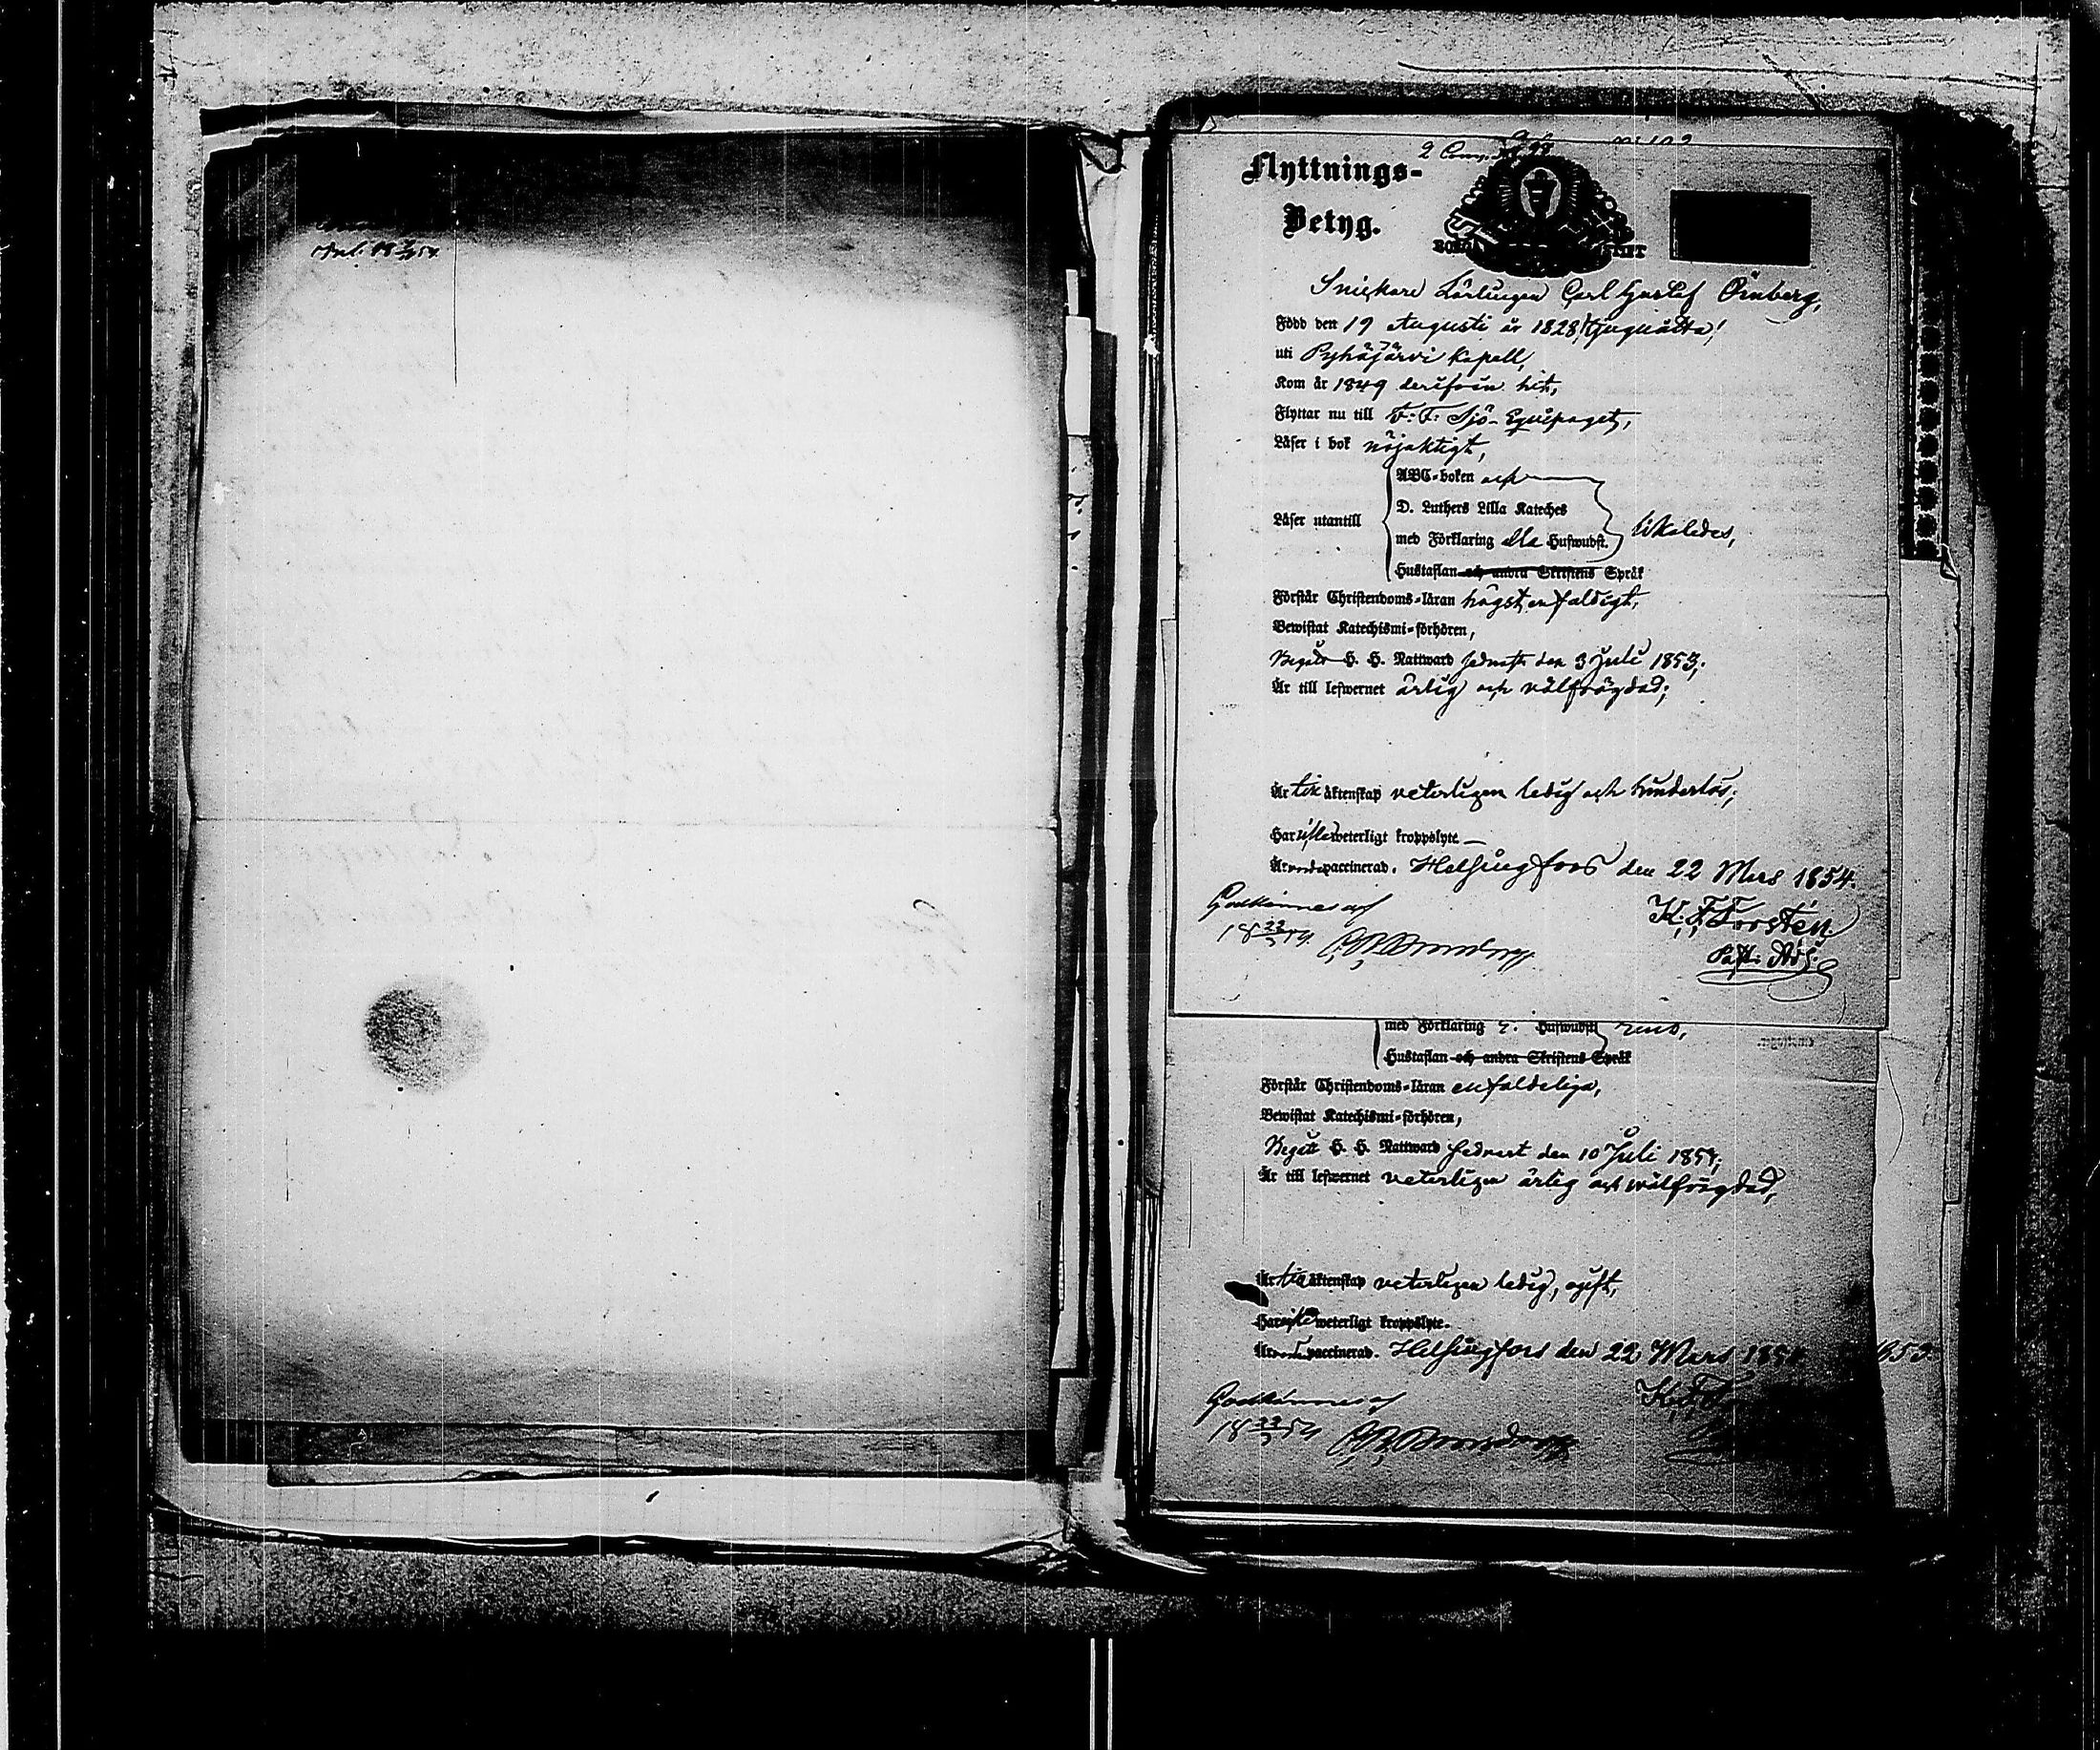 Ank. 18 54
2 Comp. № 99
Flyttnings-
Betyg.
BORGÅ STIFT
Snickare Lärlingen Carl Gustaf Örnberg,
Född den 19 Augusti år 1828 /tjuguåtta/
uti Pyhäjärvi Kapell,
Kom år 1849 derifrån hit,
Flyttar nu till F: F: Sjö-Equipaget,
Läser i bok nöjaktigt,
ABC-boken och
D. Luthers Lilla Kateches
Läser utantill
med Förklaring Hufwudst. likaledes,
Hustaflan och andra Skriftens Språk
Förstår Christendoms-läran högst enfaldigt,
Bewistat Katechismi-förhören,
Begått H. H. Nattward sednast den 3 Juli 1853;
Är till lefwernet ärlig och välfrägdad;
Är till äktenskap veterligen ledig och hinderlös;
Har weterligt kroppslyte.
Är vaccinerad. Helsingfors den 22 Mars 1854.
Godkännes af
K: F: Forstén
18 22/3 54.
Past: Adj:
med Förklaring Hufwudst. rent,
Hustaflan och andra Skriftens Språk
Förstår Christendoms-läran enfaldeliga,
Bewistat Katechismi-förhören,
Begått H. H. Nattward sednast den 10 Juli 1853;
Är till lefwernet veterligen ärlig och wälfrägdad,
Är till äktenskap veterligen ledig, ogift,
Har icke weterligt kroppslyte.
Är vaccinerad. Helsingfors den 22 Mars 1854
1853
Godkännes af
K: F:
18 22/3 54